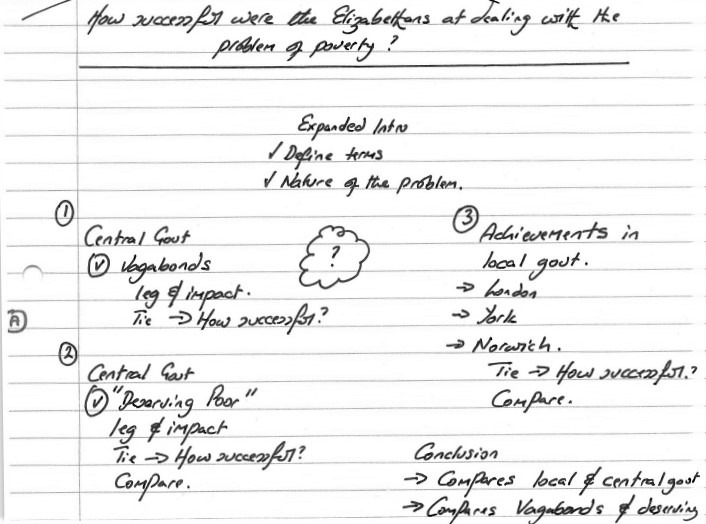 How successful were the Elizabethans at dealing with the
problem of poverty?
Expanded Intro
✓ Define terms
✓ Nature of the problem.
①
Central Govt
Ⓥ Vagabonds
leg & impact.
Tie → How successful?
?
Ⓐ
②
Central Govt
Ⓥ "Deserving Poor"
leg & impact
Tie → How successful?
Compare.
③
Achievements in
local govt.
→ London
→ York
→ Norwich.
Tie → How successful?
Compare.
Conclusion
→ Compares local & central govt
→ Compares Vagabonds & deserving